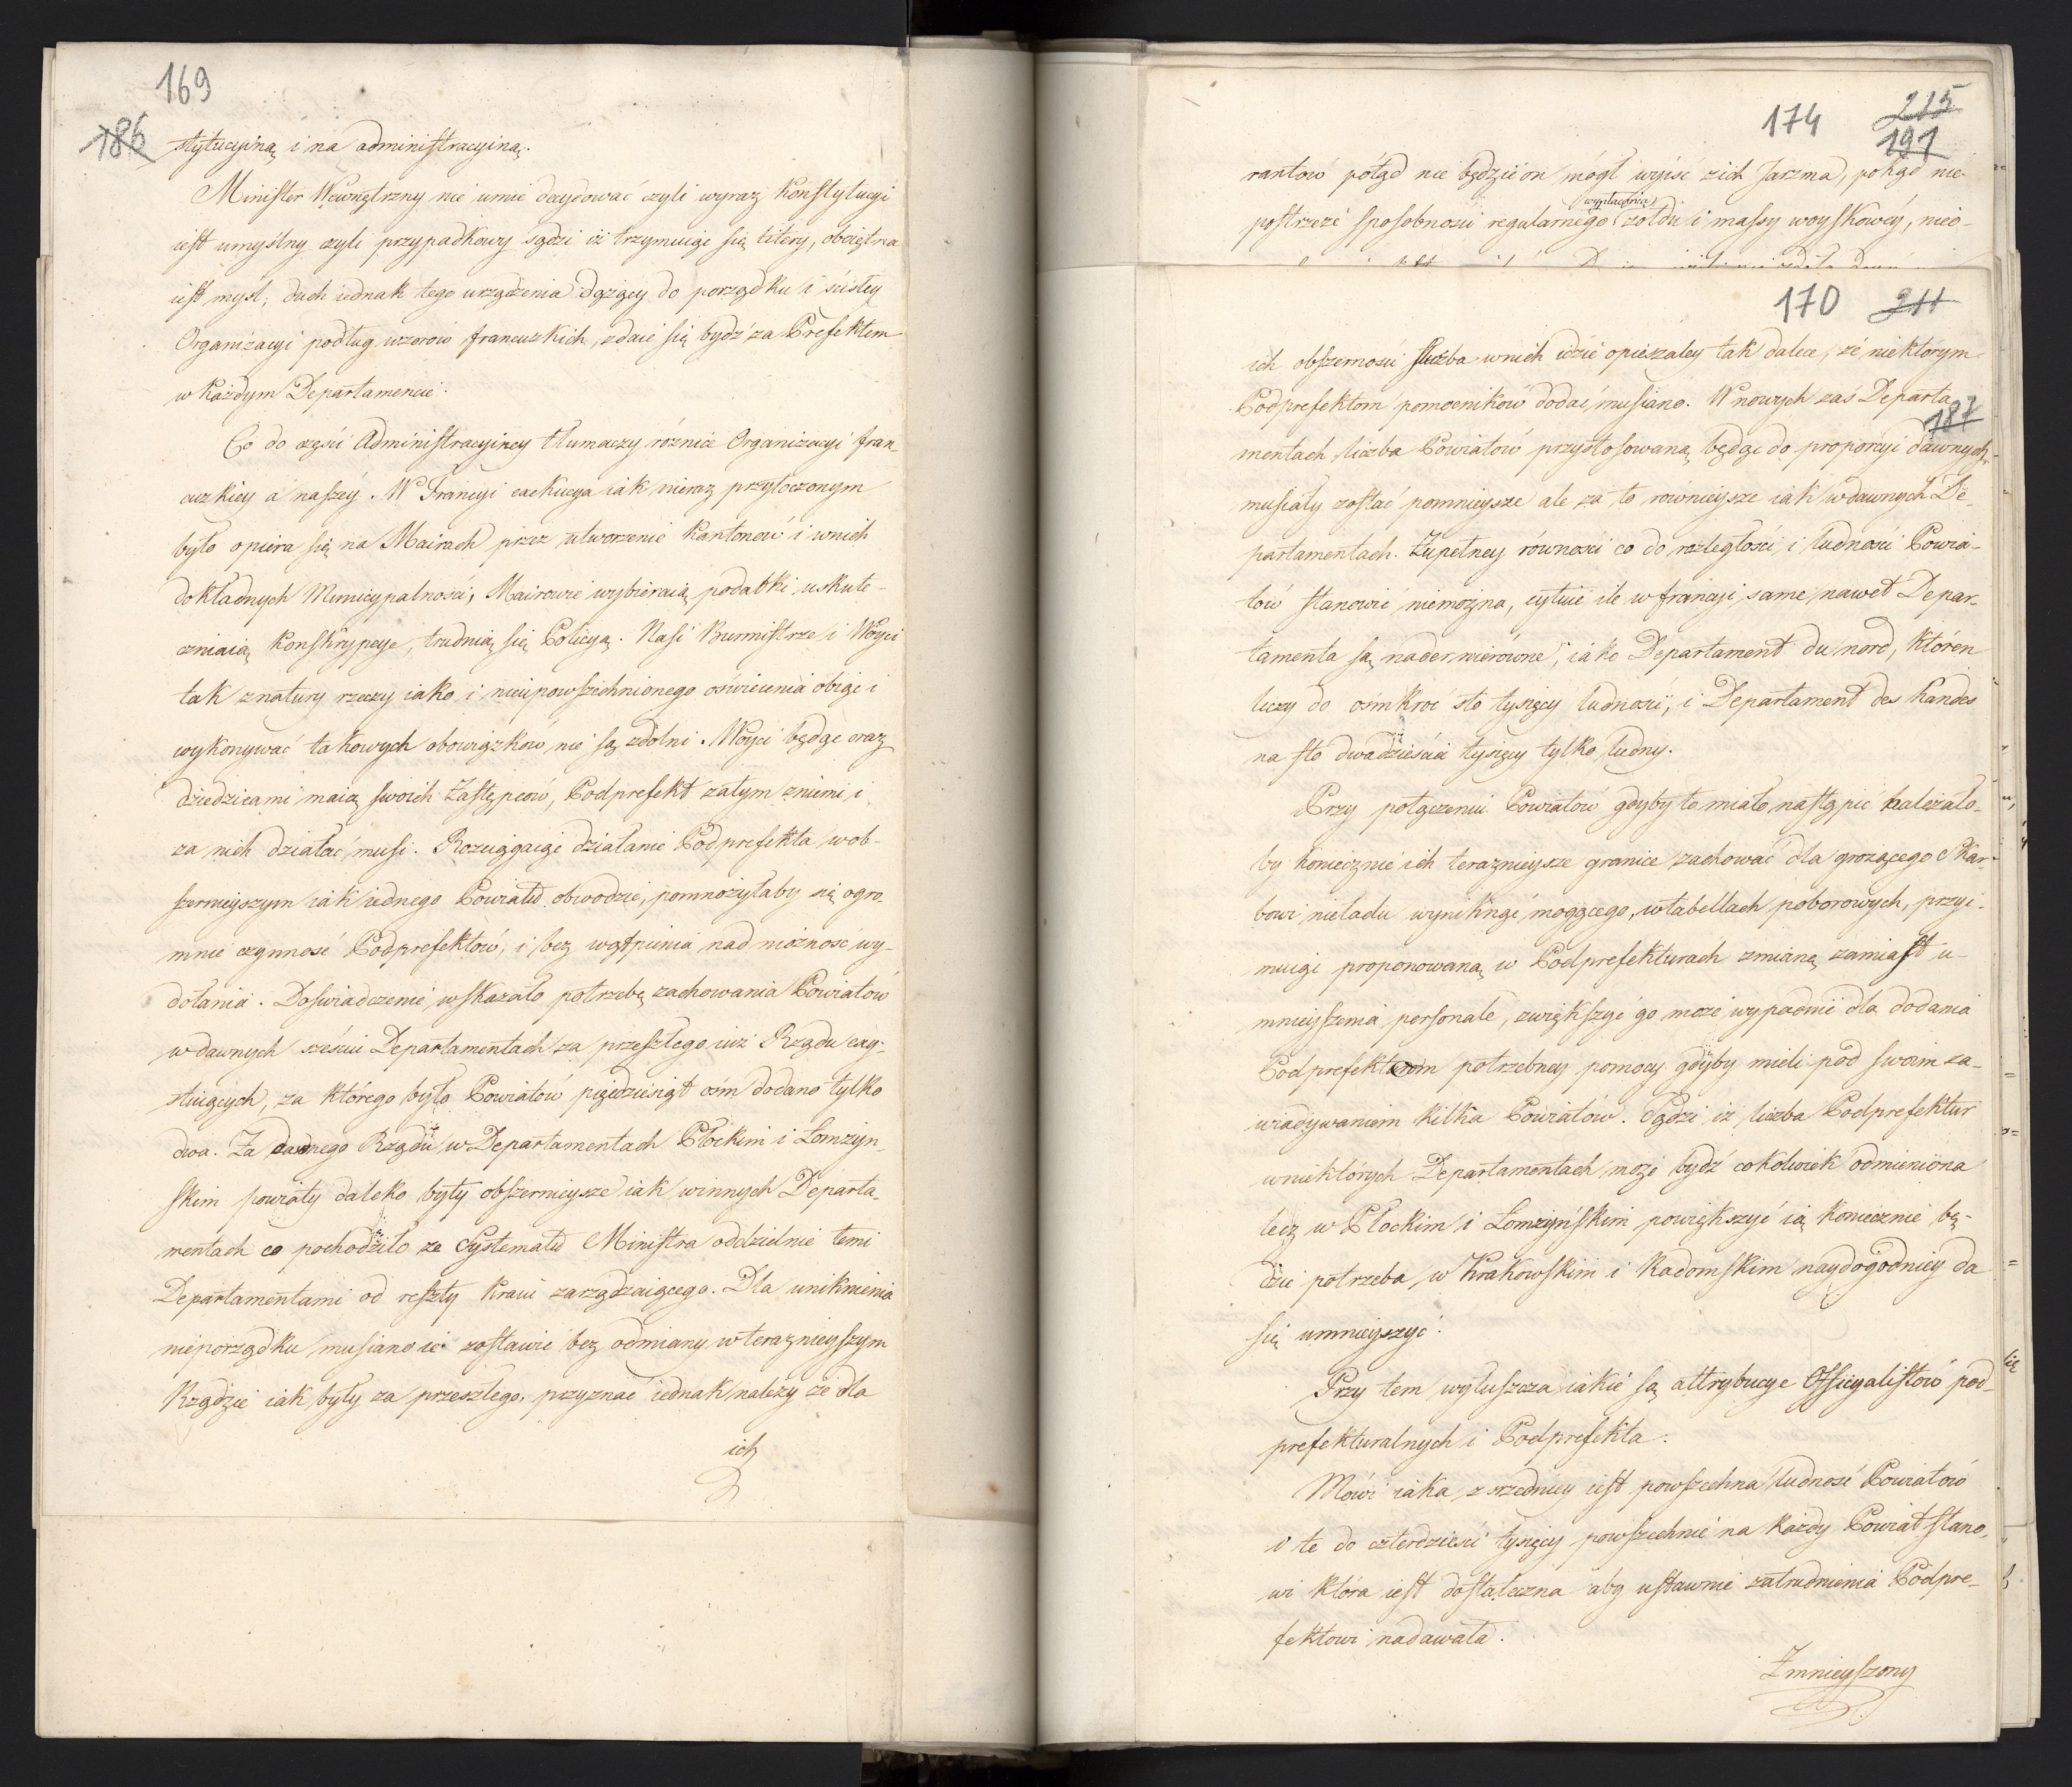 169
186
stytucyiną i na administracyiną.
Minister Wewnętrzny nie umie decydować czyli wyraz Konstytucyi
iest umyślny czyli przypadkowy sądzi iż trzymaiąc się litery, obojętna
iest myśl; duch iednak tego urządzenia dążący do porządku i ścisłey
Organizacyi podług wzorów francuzkich, zdaie się bydź za Prefektem
w każdym Departamencie.
Co do części Administracyiney tłumaczy różnice Organizacyi fran-
cuzkiey a naszéy. W Francyi exekucya iak nieraz przytoczonym
było opiera się na Mairach przez utworzenie Kantonów i w nich
dokładnych Municypalności, Mairowie wybieraią podatki uskute-
czniaią Konskrypcye, trudnią się Policyą. Nasi Burmistrze i Woyci
tak z natury rzeczy iako i nieupowszechnionego oświecenia obiąć i
wykonywać takowych obowiązków nie są zdolni. Woyci będąc oraz
dziedzicami maią swoich Zastępców, Podprefekt zatym z niemi i
za nich działać musi. Rozciągaiąc działanie Podprefekta w ob-
szernieyszym iak iednego Powiatu obwodzie, pomnożyłaby się ogro-
mnie czynność Podprefektów, i bez wątpienia nad możność wy-
dołania. Doświadczenie wskazało potrzebę zachowania Powiatów
w dawnych sześciu Departamentach za przeszłego iuż Rządu exy-
stuiących, za którego było Powiatów pięćdziesiąt ośm dodano tylko
dwa. Za dawnego Rządu w Departamentach Płockim i Łomżyń-
skim powiaty daleko były obszernieysze iak w innych Departa-
mentach co pochodziło ze Systematu Ministra oddzielnie temi
Departamentami od reszty Kraiu zarządzaiącego. Dla uniknienia
nieporządku musiano ie zostawić bez odmiany w teraznieyszym
Rządzie iak były za przeszłego, przyznać iednak należy że dla
ich
174 215
191
rantów póţąd nie będzie on mógł wyiść z ich Jarzma, pokąd nie
wypłacenia
postrzeże sposobności regularnego żołdu i massy woyskowéy, nieo-
170 211
ich obszerności służba w nich idzie opieszaley tak dalece, że niektórym
Podprefektom pomocników dodać musiano. W nowych zaś Departa
187
mentach liczba Powiatów przystosowaną będąc do proporcyi dawnych,
musiały zostać pomnieysze ale za to równieysze iak w dawnych De-
partamentach. Zupełney równości co do rozległości i ludności Powia-
tów stanowić niemożna, cytuie ile w francyi same nawet Depar-
tamenta są nader nierówne, iako Departament du nord, któren
liczy do ośmkroć sto tysięcy ludności, i Departament des Landes
na sto dwadzieścia tysięcy tylko ludny.
Przy połączeniu Powiatów gdyby to miało nastąpić należało-
by koniecznie ich teraznieysze granice zachować dla grożącego Skar-
bowi nieładu wyniknąć mogącego, w tabellach poborowych, przyi-
muiąc proponowaną w Podprefekturach zmianę zamiast u-
mnieyszenia personale, zwiększyć go może wypadnie dla dodania
Podprefektom potrzebney pomocy gdyby mieli pod swoim za-
wiadywaniem kilka Powiatów. Sądzi iż liczba Podprefektur
w niektórych Departamentach może bydź cokolwiek odmieniona
lecz w Płockim i Łomżyńskim powiększyć ią koniecznie bę-
dzie potrzeba, w Krakowskim i Radomskim naydogodniey da
się umnieyszyć.
Przy tem wyłuszcza iakie są attrybucye Officyalistów pod-
prefekturalnych i Podprefekta.
Mówi iaka z średniey iest powszechna ludność Powiatów
i te do czterdzieści tysięcy powszechnie na każdy Powiat stano-
wi która iest dostateczna aby ustawnie zatrudnienia Podpre-
fektowi nadawała.
Zmnieyszony